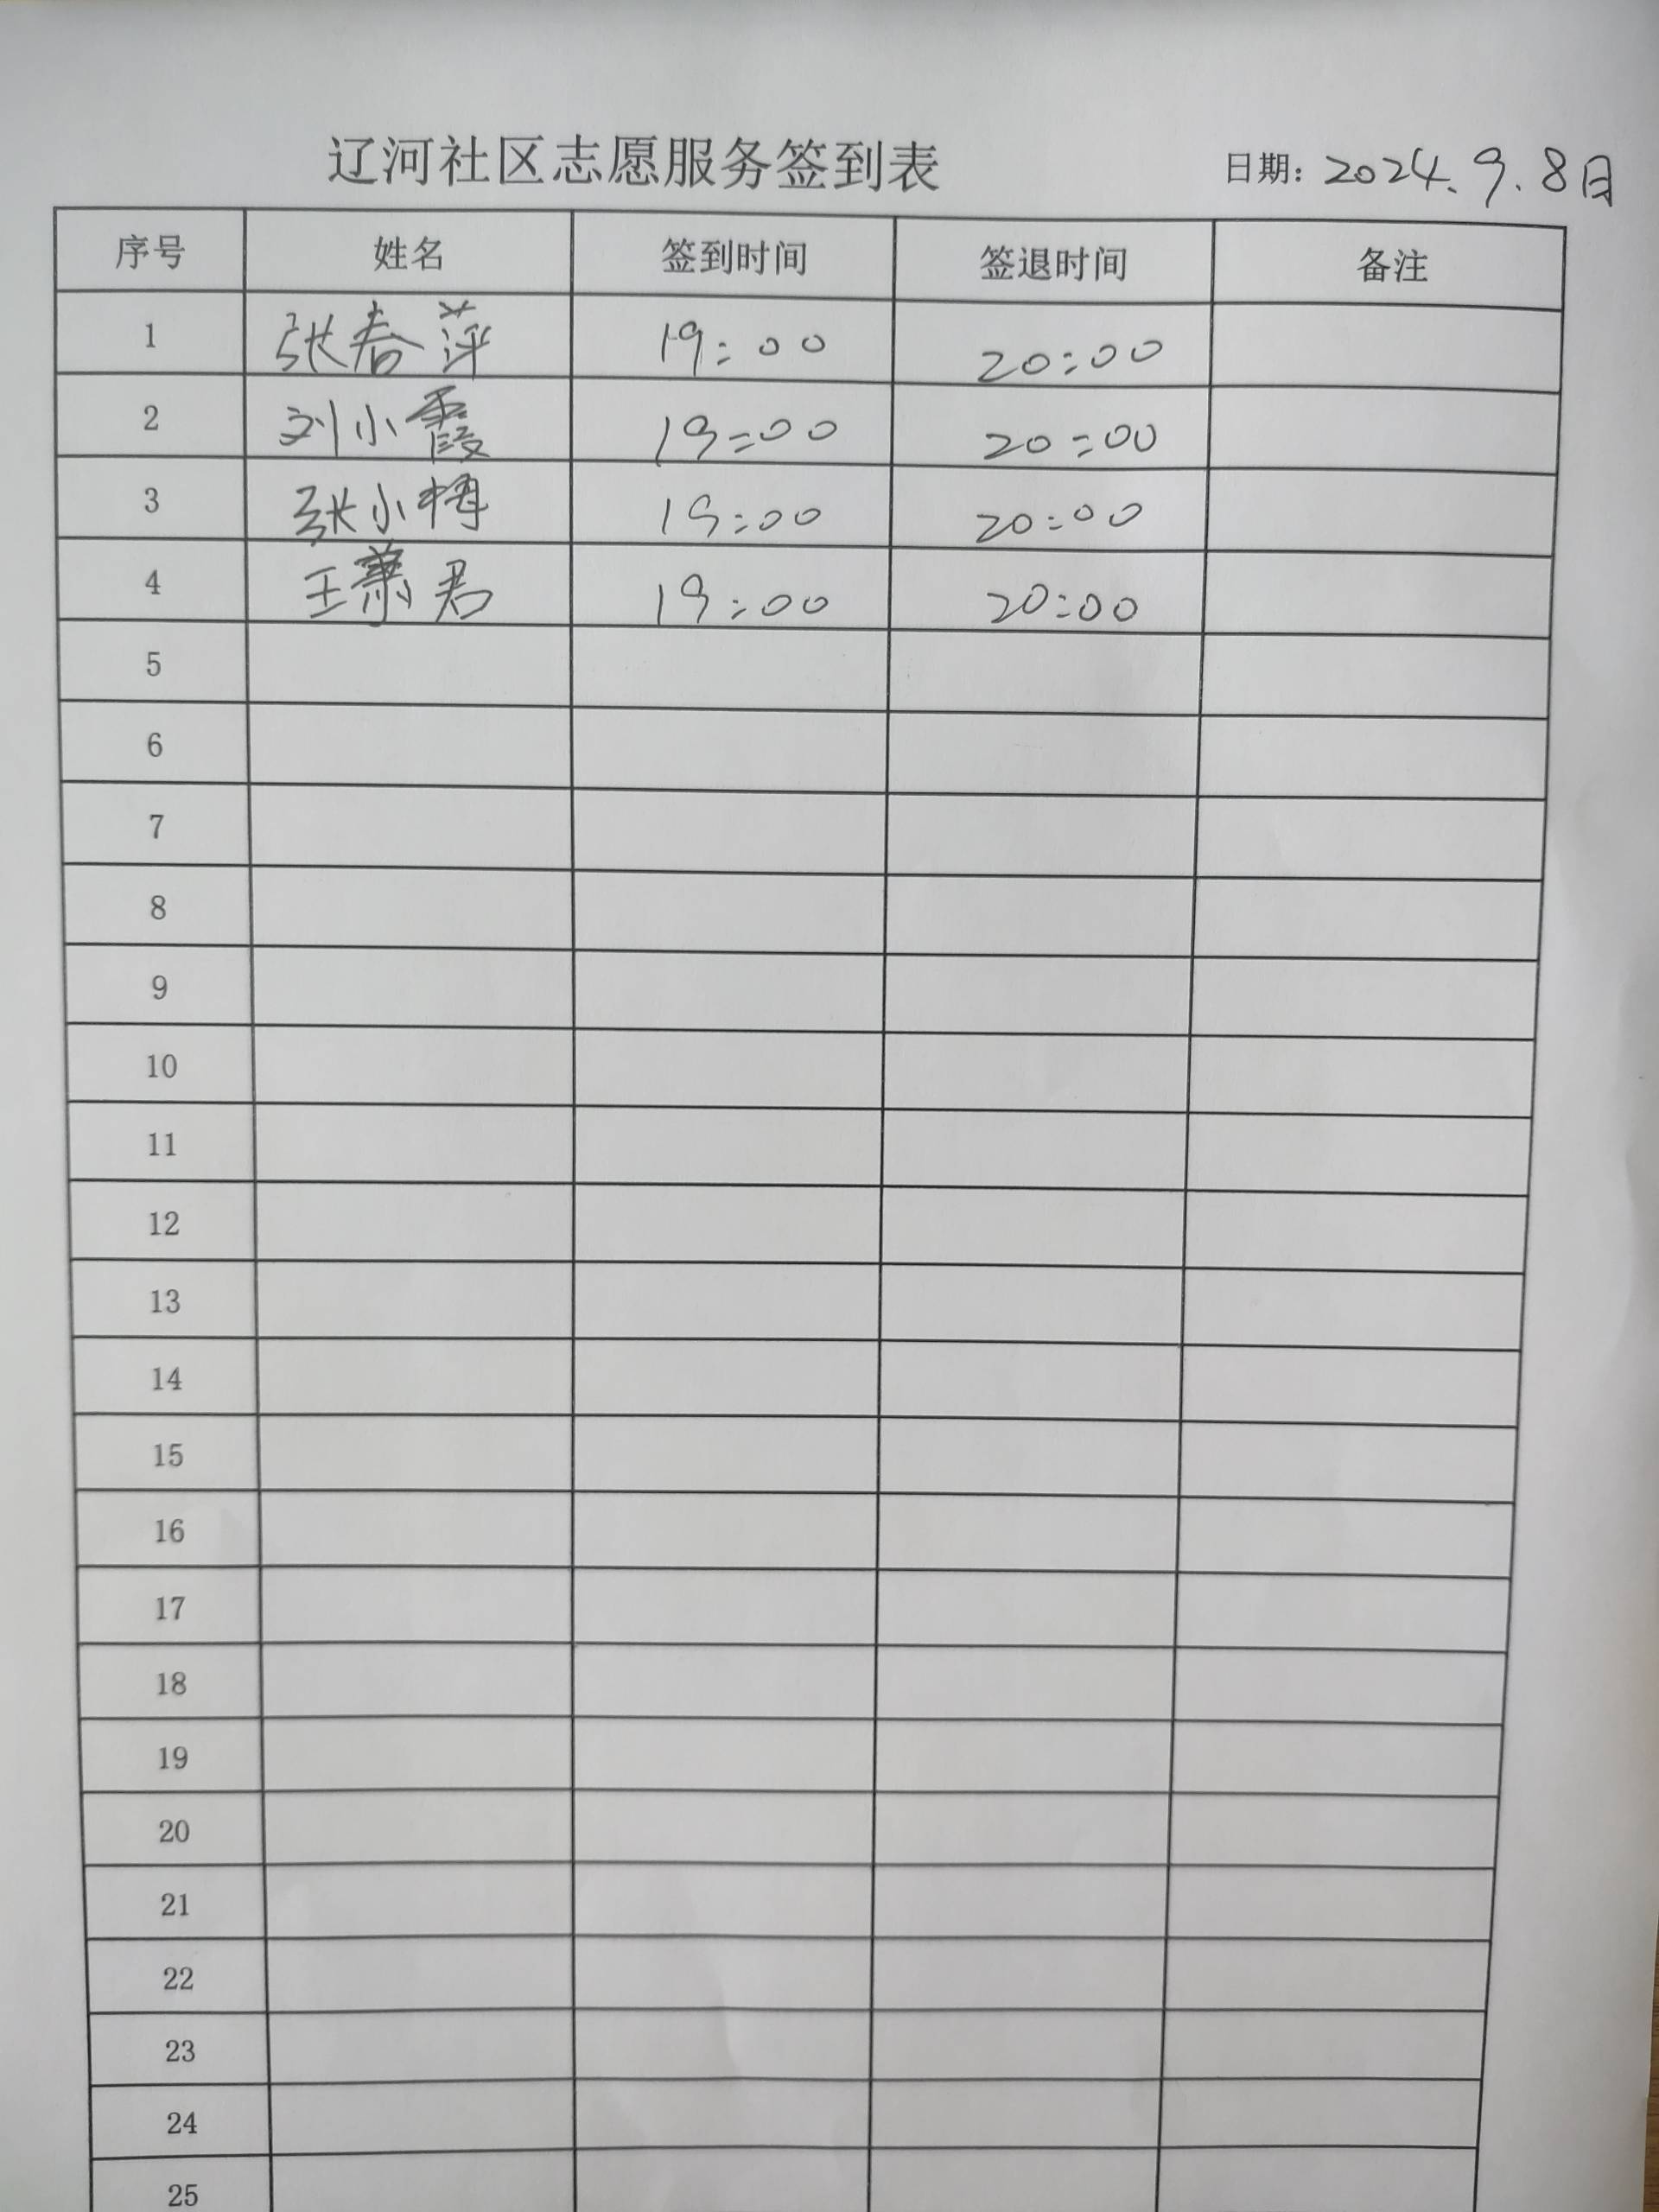 辽河社区志愿服务签到表 日期：2024.9.8日
序号 姓名 签到时间 签退时间 备注
1 张春萍 19:00 20:00
2 刘小霞 19:00 20:00
3 张小梅 19:00 20:00
4 王萧君 19:00 20:00
5
6
7
8
9
10
11
12
13
14
15
16
17
18
19
20
21
22
23
24
25